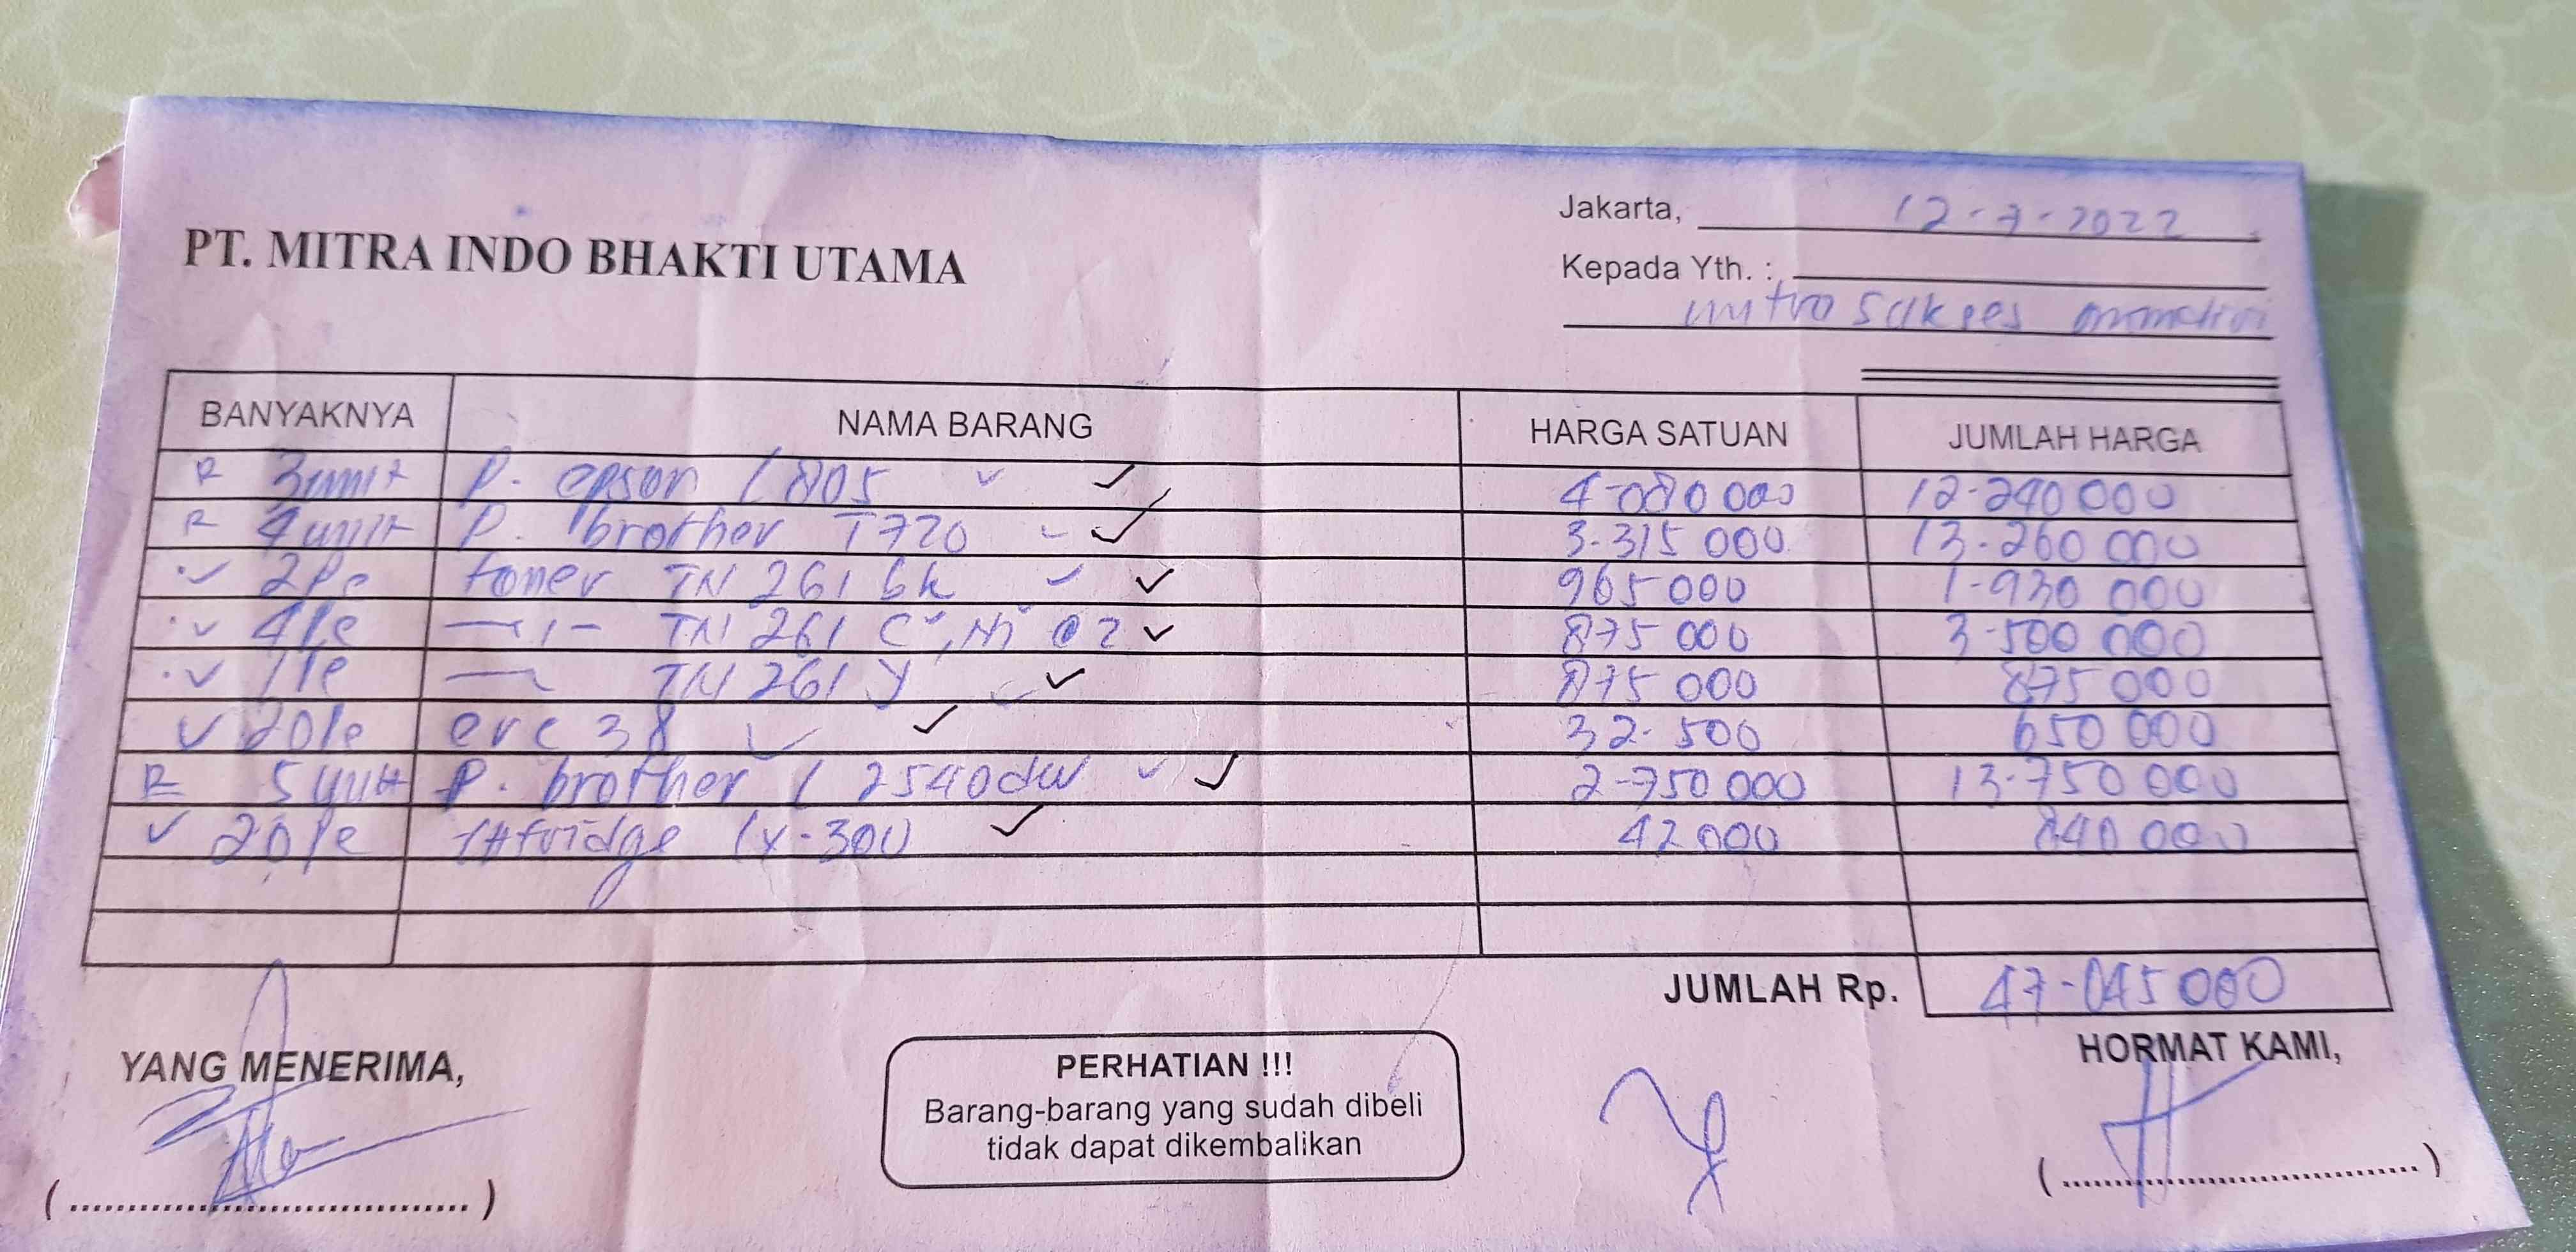 PT. MITRA INDO BHAKTI UTAMA
Jakarta, 12-7-2022
Kepada Yth. :
mitra Sukses
BANYAKNYA NAMA BARANG HARGA SATUAN JUMLAH HARGA
R 3 unit P. epson L 805 ✓ ✓ 4-080 000 12-240 000
R 4 unit P. brother T720 ✓ 3-315 000 13-260 000
✓ 2 Pc toner TN 261 bk ✓ ✓ 965 000 1-930 000
✓ 4 Pc —〃— TN 261 C, M @ 2 ✓ 875 000 3-500 000
✓ 1 Pc — TN 261 Y ✓ 875 000 875 000
✓ 20 Pc erc 38 ✓ ✓ 32-500 650 000
R 5 unit P. brother L 2540dw ✓ ✓ 2-750 000 13-750 000
✓ 20 Pc lx-300 ✓ 42 000 840 000
JUMLAH Rp. 47-045 000
YANG MENERIMA,
PERHATIAN !!!
Barang-barang yang sudah dibeli
tidak dapat dikembalikan
HORMAT KAMI,